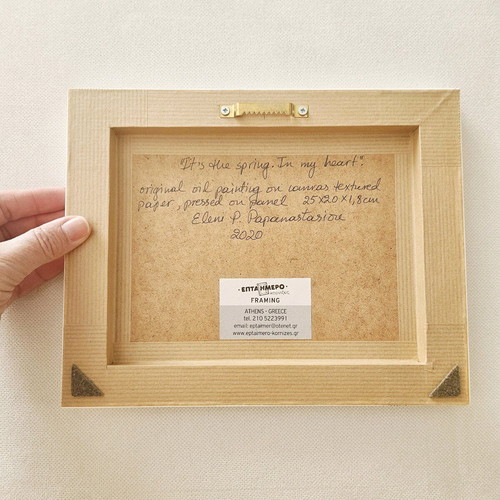 "It's the spring. In my heart".
original oil painting on canvas textured
paper, pressed on panel 25x20x1,8cm
Eleni P. Papanastasiou
2020
· ΕΠΤΑΗΜΕΡΟ ·
FRAMING
ATHENS - GREECE
tel. 210 5223991
email: eptaimer@otenet.gr
www.eptaimero-kornizes.gr